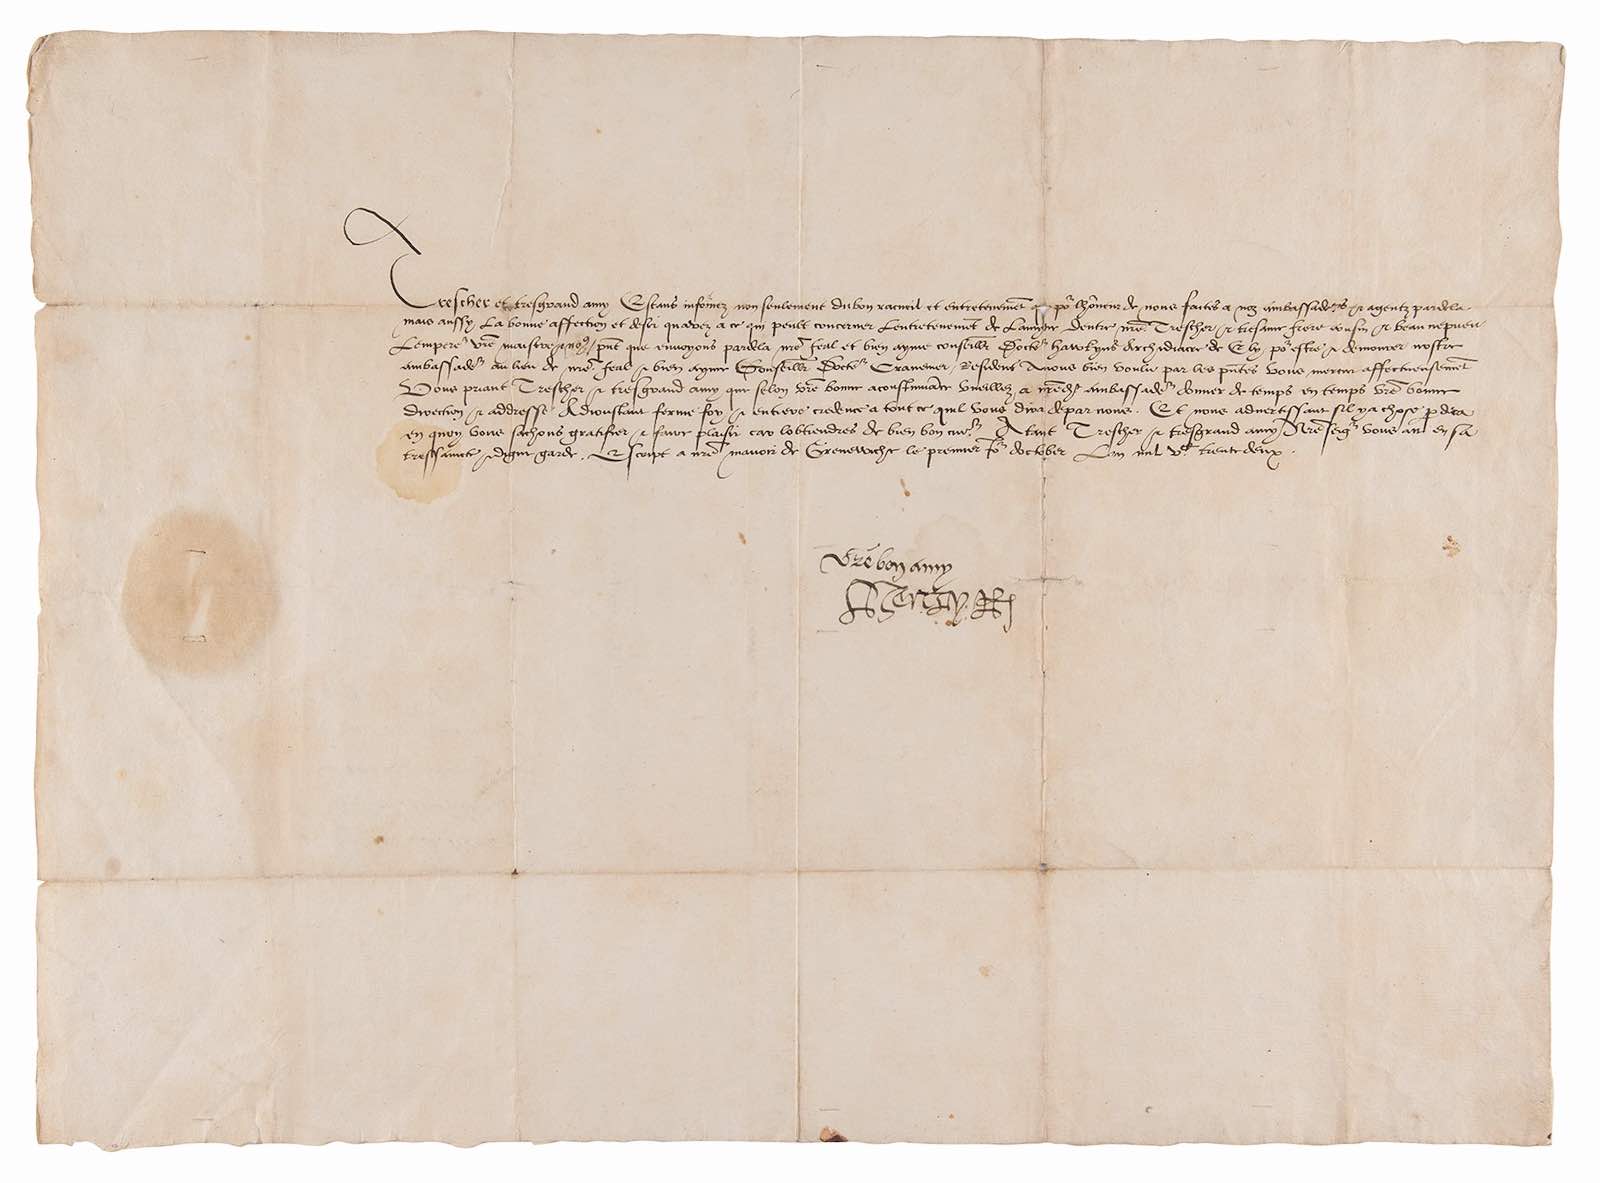 Trescher et tresgrand amy Estans informez non seulement du bon racueil et entretenemēt q̄ po~ lhōneur de nous faites a noz ambassade~s & agentz pardela
mais aussy La bonne affection et desir quavez a ce qui peult concerner Lentretenemēt de Lamytie dentre nrē Trescher & tresame frere cousin & beau nepueu
Lempere~ vrē maistre & nous / pn̄t que envoyons pardela nrē feal et bien ayme conseillr Docte~ hawkyns Archidiacre de Ely po~ estre & demourer nostre
ambassade~ au lieu de nrē feal & bien ayme Conseillr Docte~ Cranemer, Resident Avons bien voulu par les pn̄tes vous mercier affectueusemēt
Vous priant Trescher & tresgrand amy que selon vrē bonne acoustumāce vueillez a nrēd~ ambassade~ donner de temps en temps vrē bonne
direction & addresse Adioustant ferme foy & entiere credence a tout ce quil vous dira de par nous . Et nous advertissant sil y a chose p̄ deca
en quoy vous sachons gratifier & faire plaisir car lobtiendres de bien bon cue~ Atant Trescher & tresgrand amy Nrē seig~ vous ait en sa
tressaincte & digne garde . Escript a nrē manoir de Grenewiche le premier jo~ doctober Lan mil vc trente deux .
Vrē bon amy
Henry R